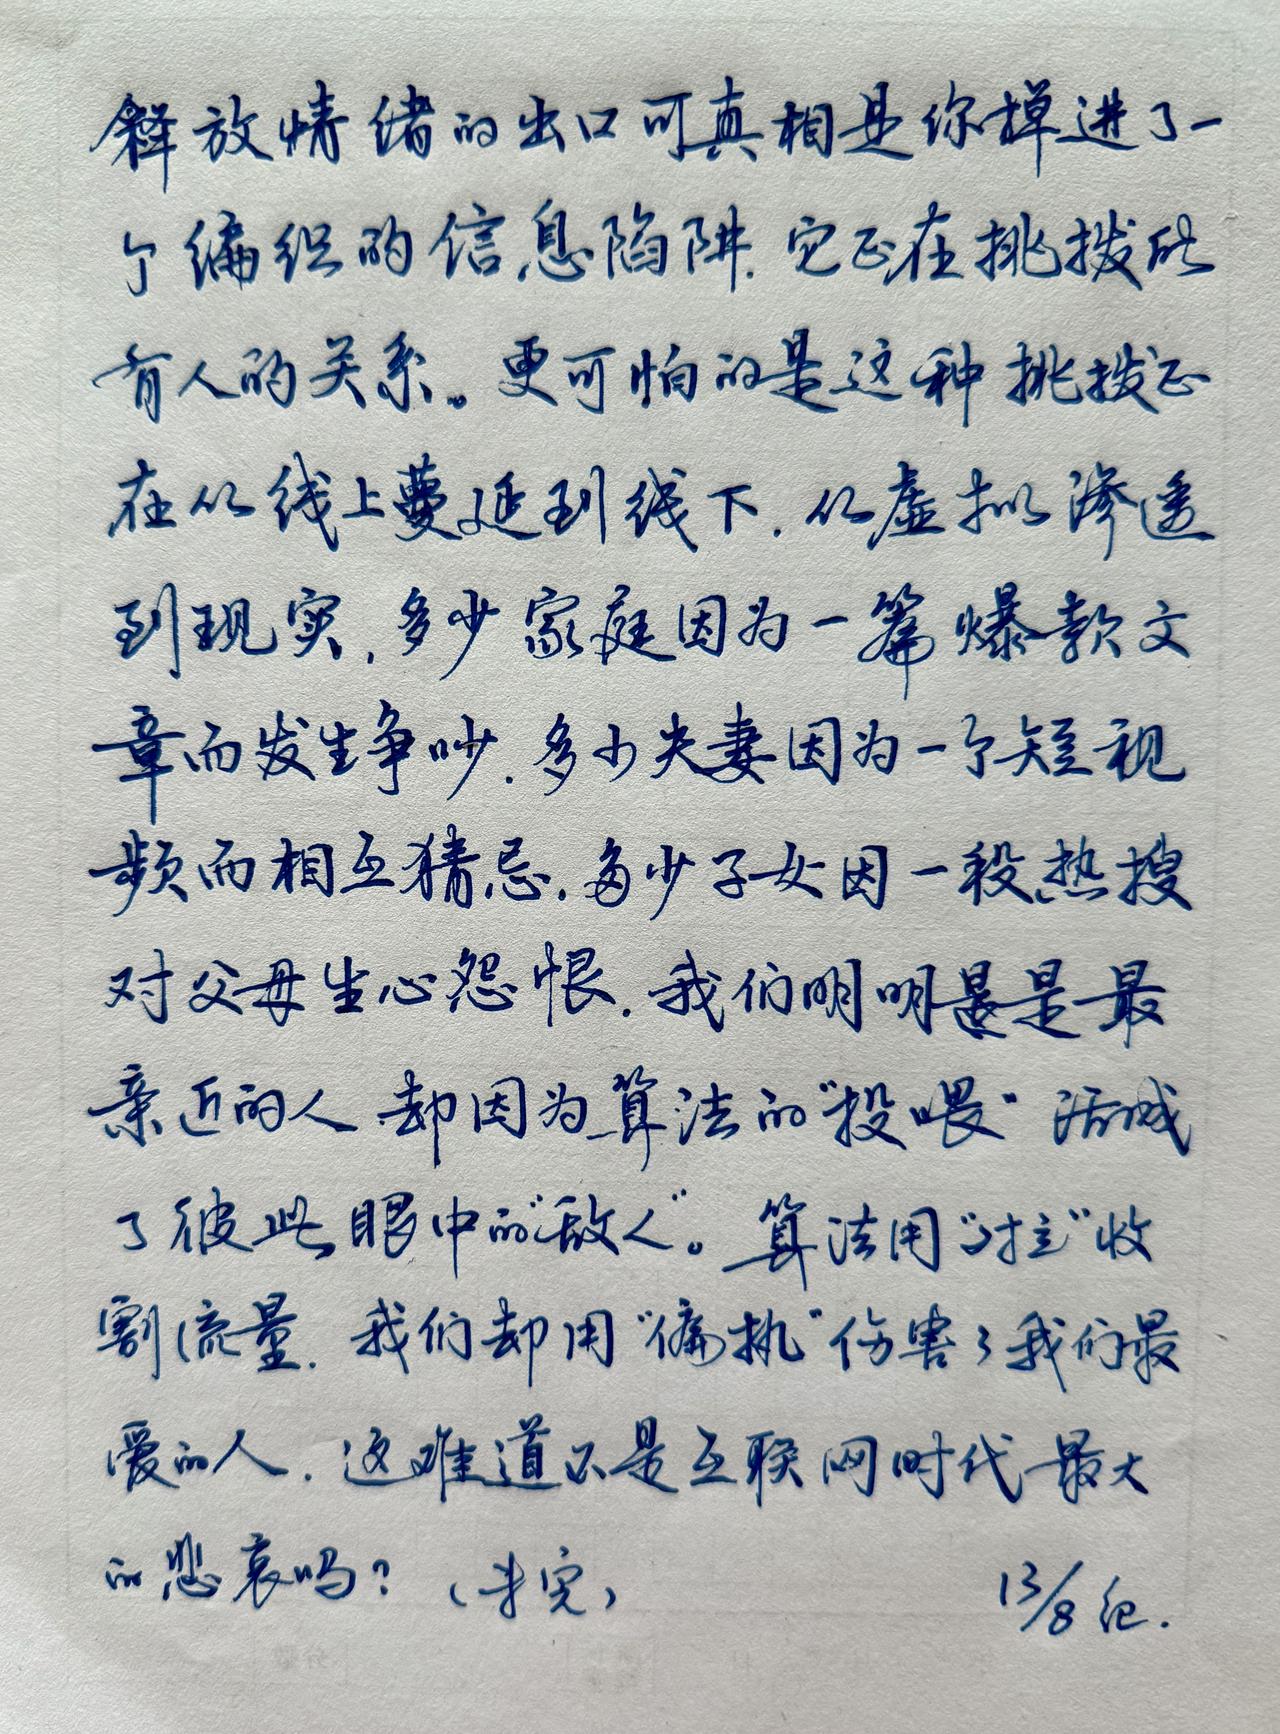 释放情绪的出口可真相是你掉进了一
个编织的信息陷阱.它正在挑拨所
有人的关系。更可怕的是这种挑拨正
在从线上蔓延到线下.从虚拟渗透
到现实,多少家庭因为一篇爆款文
章而发生争吵.多少夫妻因为一个短视
频而相互猜忌.多少子女因一段热搜
对父母生心怨恨.我们明明是最
亲近的人 却因为算法的"投喂"活成
了彼此眼中的"敌人"。算法用"对立"收
割流量.我们却用"偏执"伤害了我们最
爱的人.这难道不是互联网时代最大
的悲哀吗?(未完)
13/8 纪.